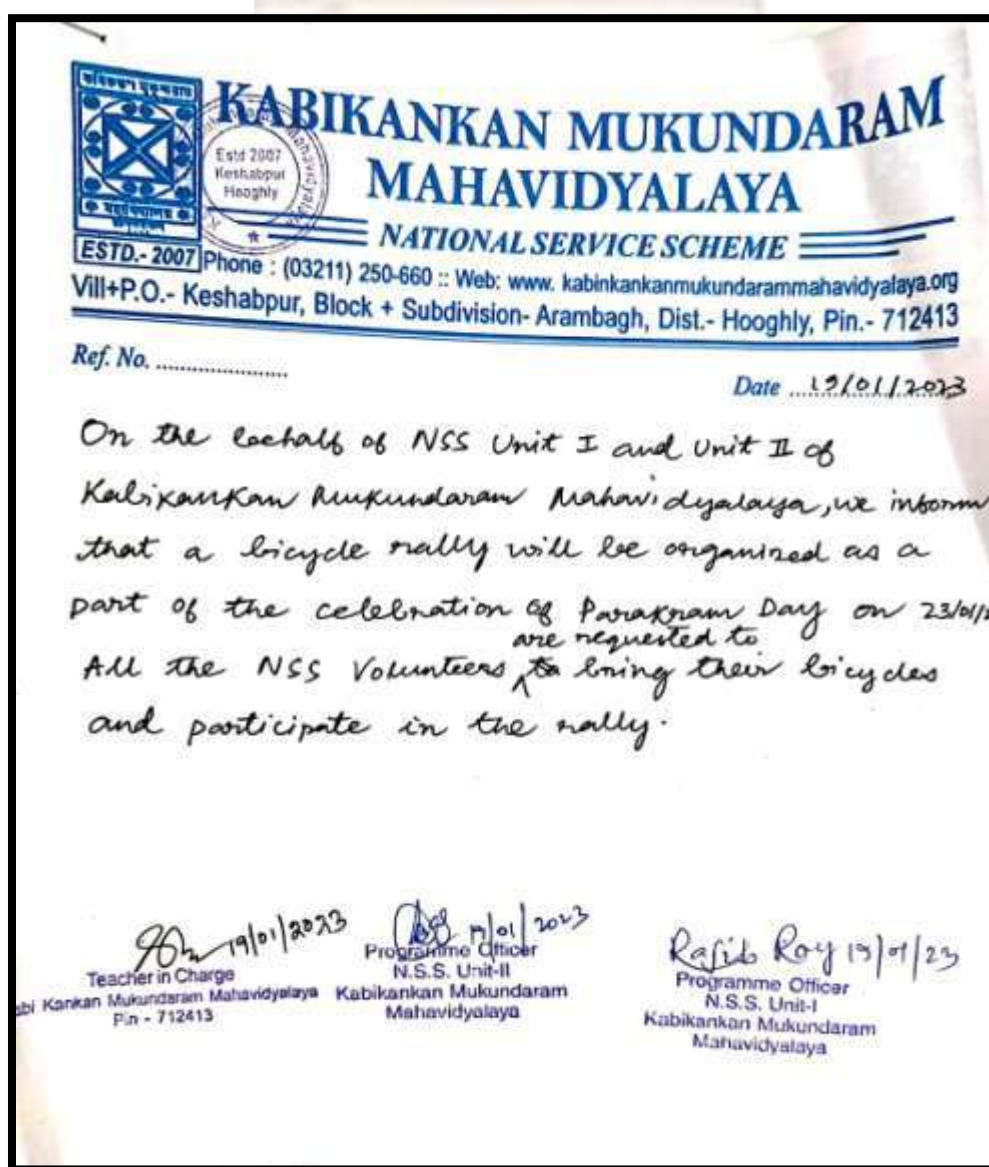 KABIKANKAN MUKUNDARAM
MAHAVIDYALAYA
NATIONAL SERVICE SCHEME
Estd 2007
Keshabpur
Hooghly
ESTD.- 2007
Phone : (03211) 250-660 :: Web: www. kabinkankanmukundarammahavidyalaya.org
Vill+P.O.- Keshabpur, Block + Subdivision- Arambagh, Dist.- Hooghly, Pin.- 712413
Ref. No. ......................
Date ....19/01/2023
On the behalf of NSS Unit I and Unit II of
Kabikankan Mukundaram Mahavidyalaya, we inform
that a bicycle rally will be organized as a
part of the celebration of Parakram Day on 23/01/2
All the NSS Volunteers are requested to bring their bicycles
and participate in the rally.
19/01/2023
Teacher in Charge
bi Kankan Mukundaram Mahavidyalaya
Pin - 712413
19/01/2023
Programme Officer
N.S.S. Unit-II
Kabikankan Mukundaram
Mahavidyalaya
Rajib Roy 19/01/23
Programme Officer
N.S.S. Unit-I
Kabikankan Mukundaram
Mahavidyalaya